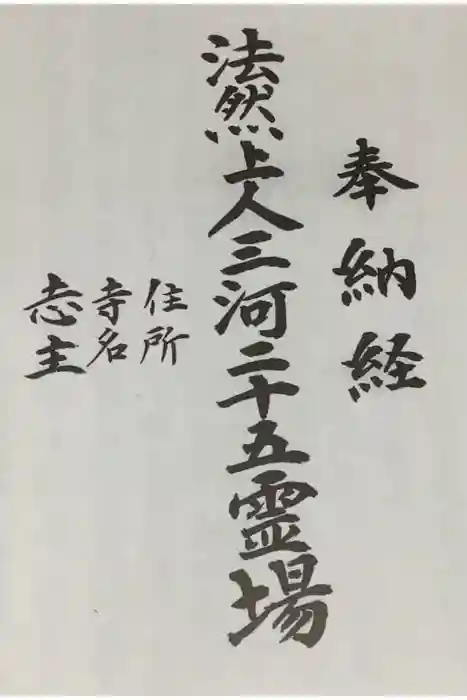 奉納経
法然上人三河二十五霊場
住所
寺名
志主